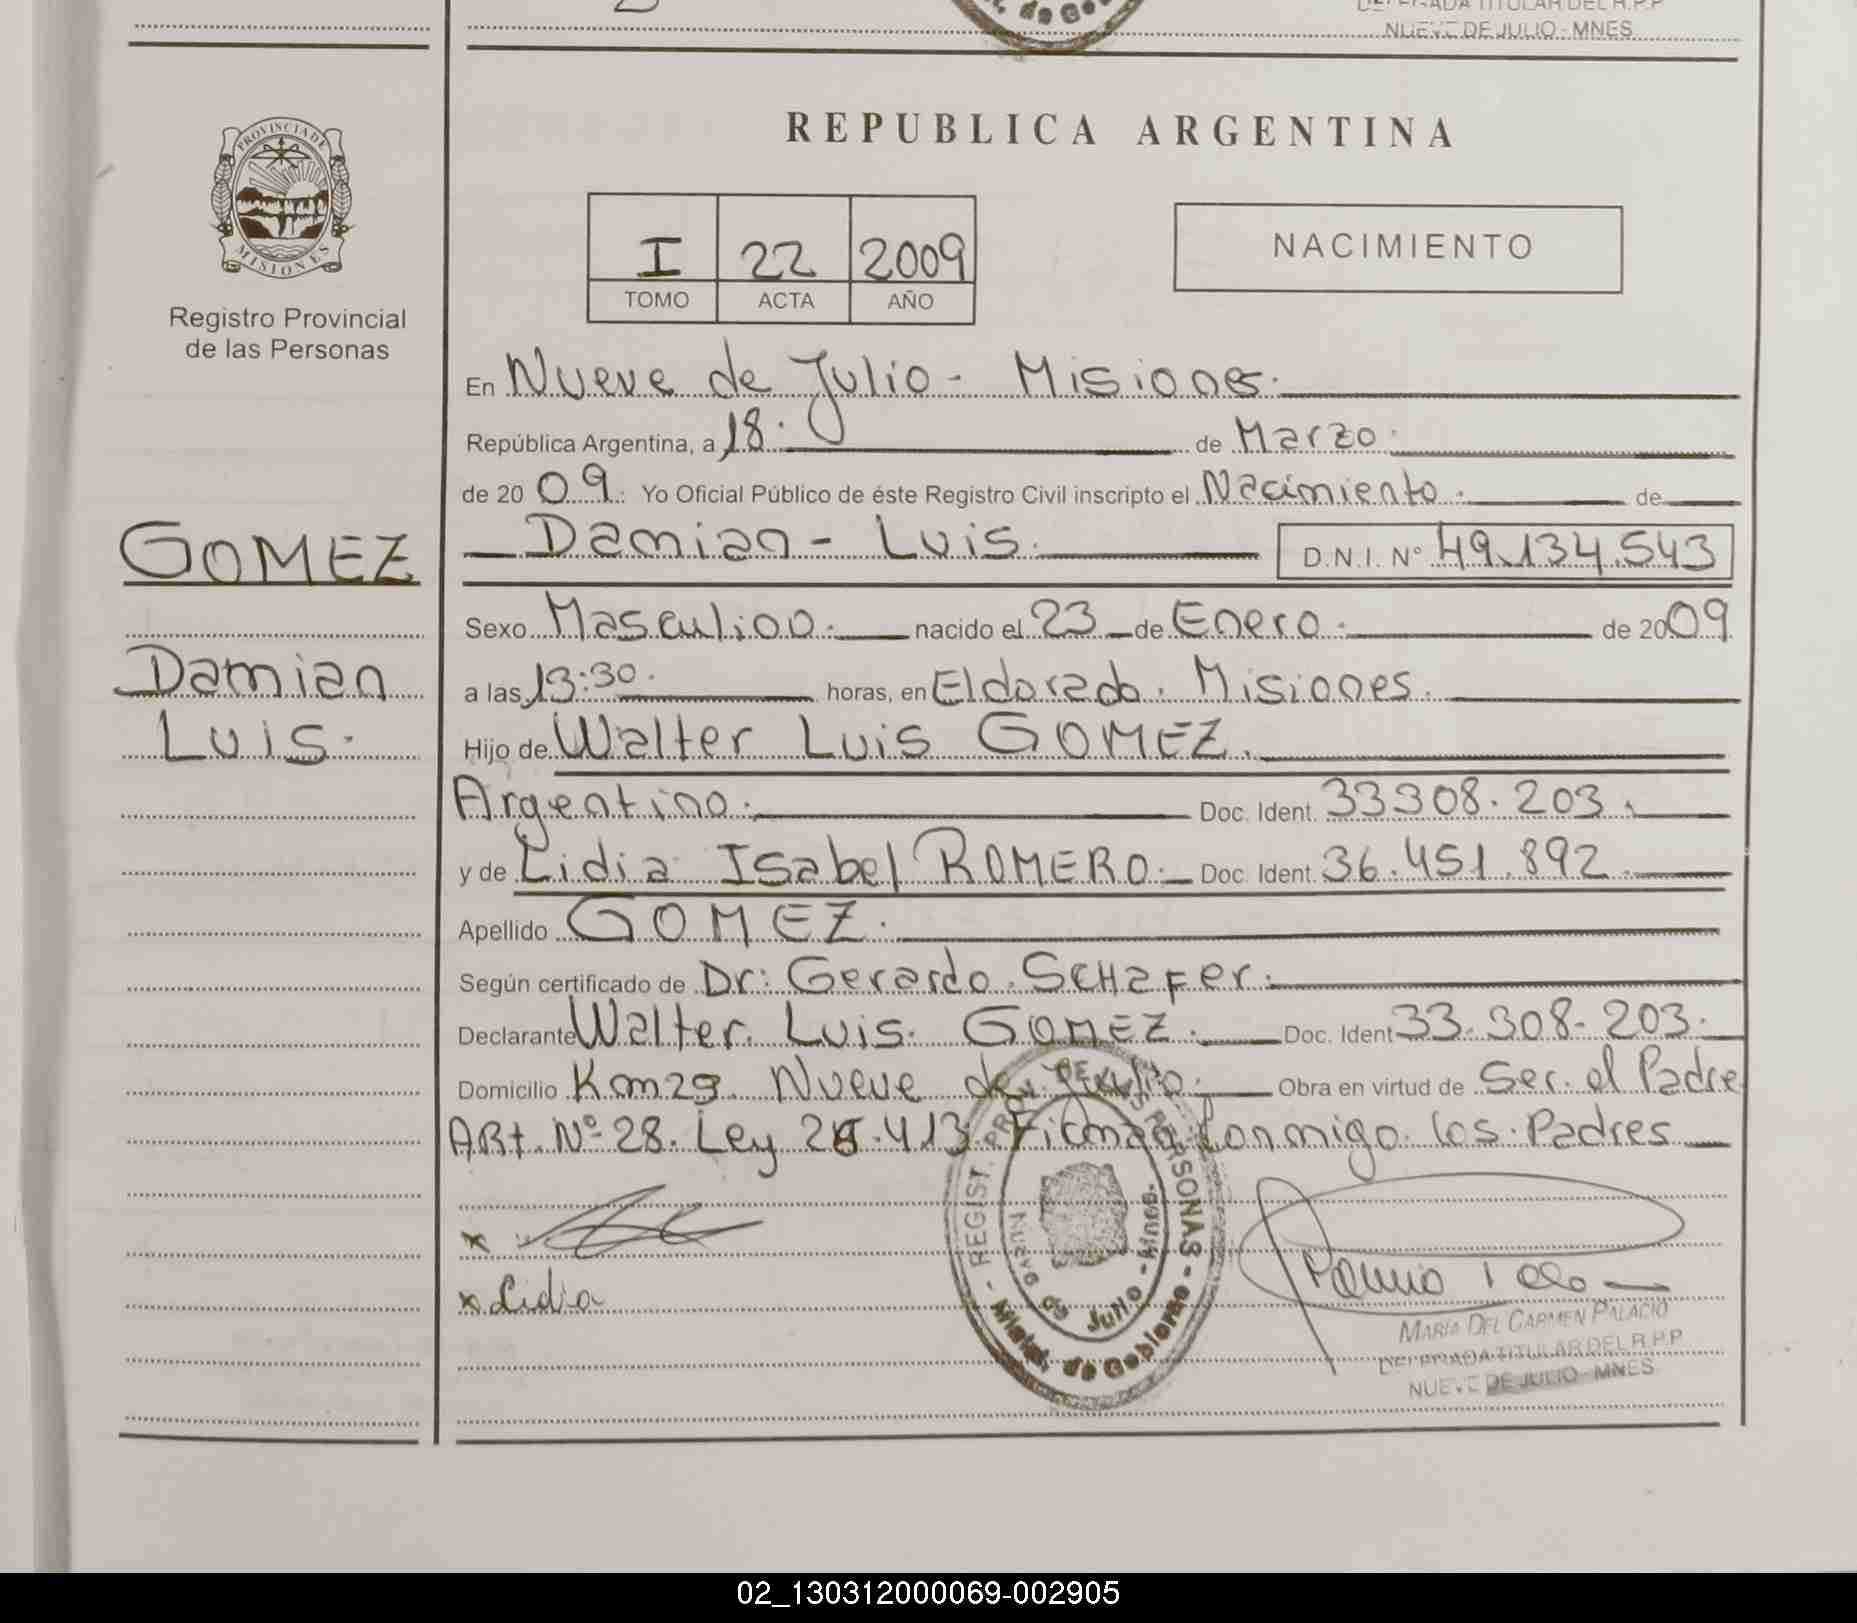 DELEGADA TITULAR DEL R.P.P
NUEVE DE JULIO - MNES
PROVINCIA DE
MISIONES
Registro Provincial
de las Personas
REPUBLICA ARGENTINA
I 22 2009
TOMO ACTA AÑO
NACIMIENTO
En Nueve de Julio - Misiones.
República Argentina, a 18. de Marzo.
de 20 09. Yo Oficial Público de éste Registro Civil inscripto el Nacimiento. de
GOMEZ
Damian - Luis. D.N.I. Nº 49.134.543
Sexo Masculino. nacido el 23 de Enero. de 2009
Damian
a las 13:30. horas, en Eldorado. Misiones.
Luis.
Hijo de Walter Luis GOMEZ.
Argentino. Doc. Ident. 33308.203.
y de Lidia Isabel ROMERO. Doc. Ident. 36.451.892.
Apellido GOMEZ.
Según certificado de Dr: Gerardo. SCHAFer.
Declarante Walter. Luis. GOMEZ. Doc. Ident 33.308.203.
Domicilio Km29. Nueve de Julio. Obra en virtud de Ser. el Padre
ARt. Nº 28. Ley 26.413. Firman Conmigo. los. Padres
x
x Lidia
REGIST. PROV. DE LAS PERSONAS - Minist. de Gobierno -
Nueve de Julio - Mnes.
MARIA DEL CARMEN PALACIO
DELEGADA TITULAR DEL R.P.P
NUEVE DE JULIO - MNES
02_130312000069-002905